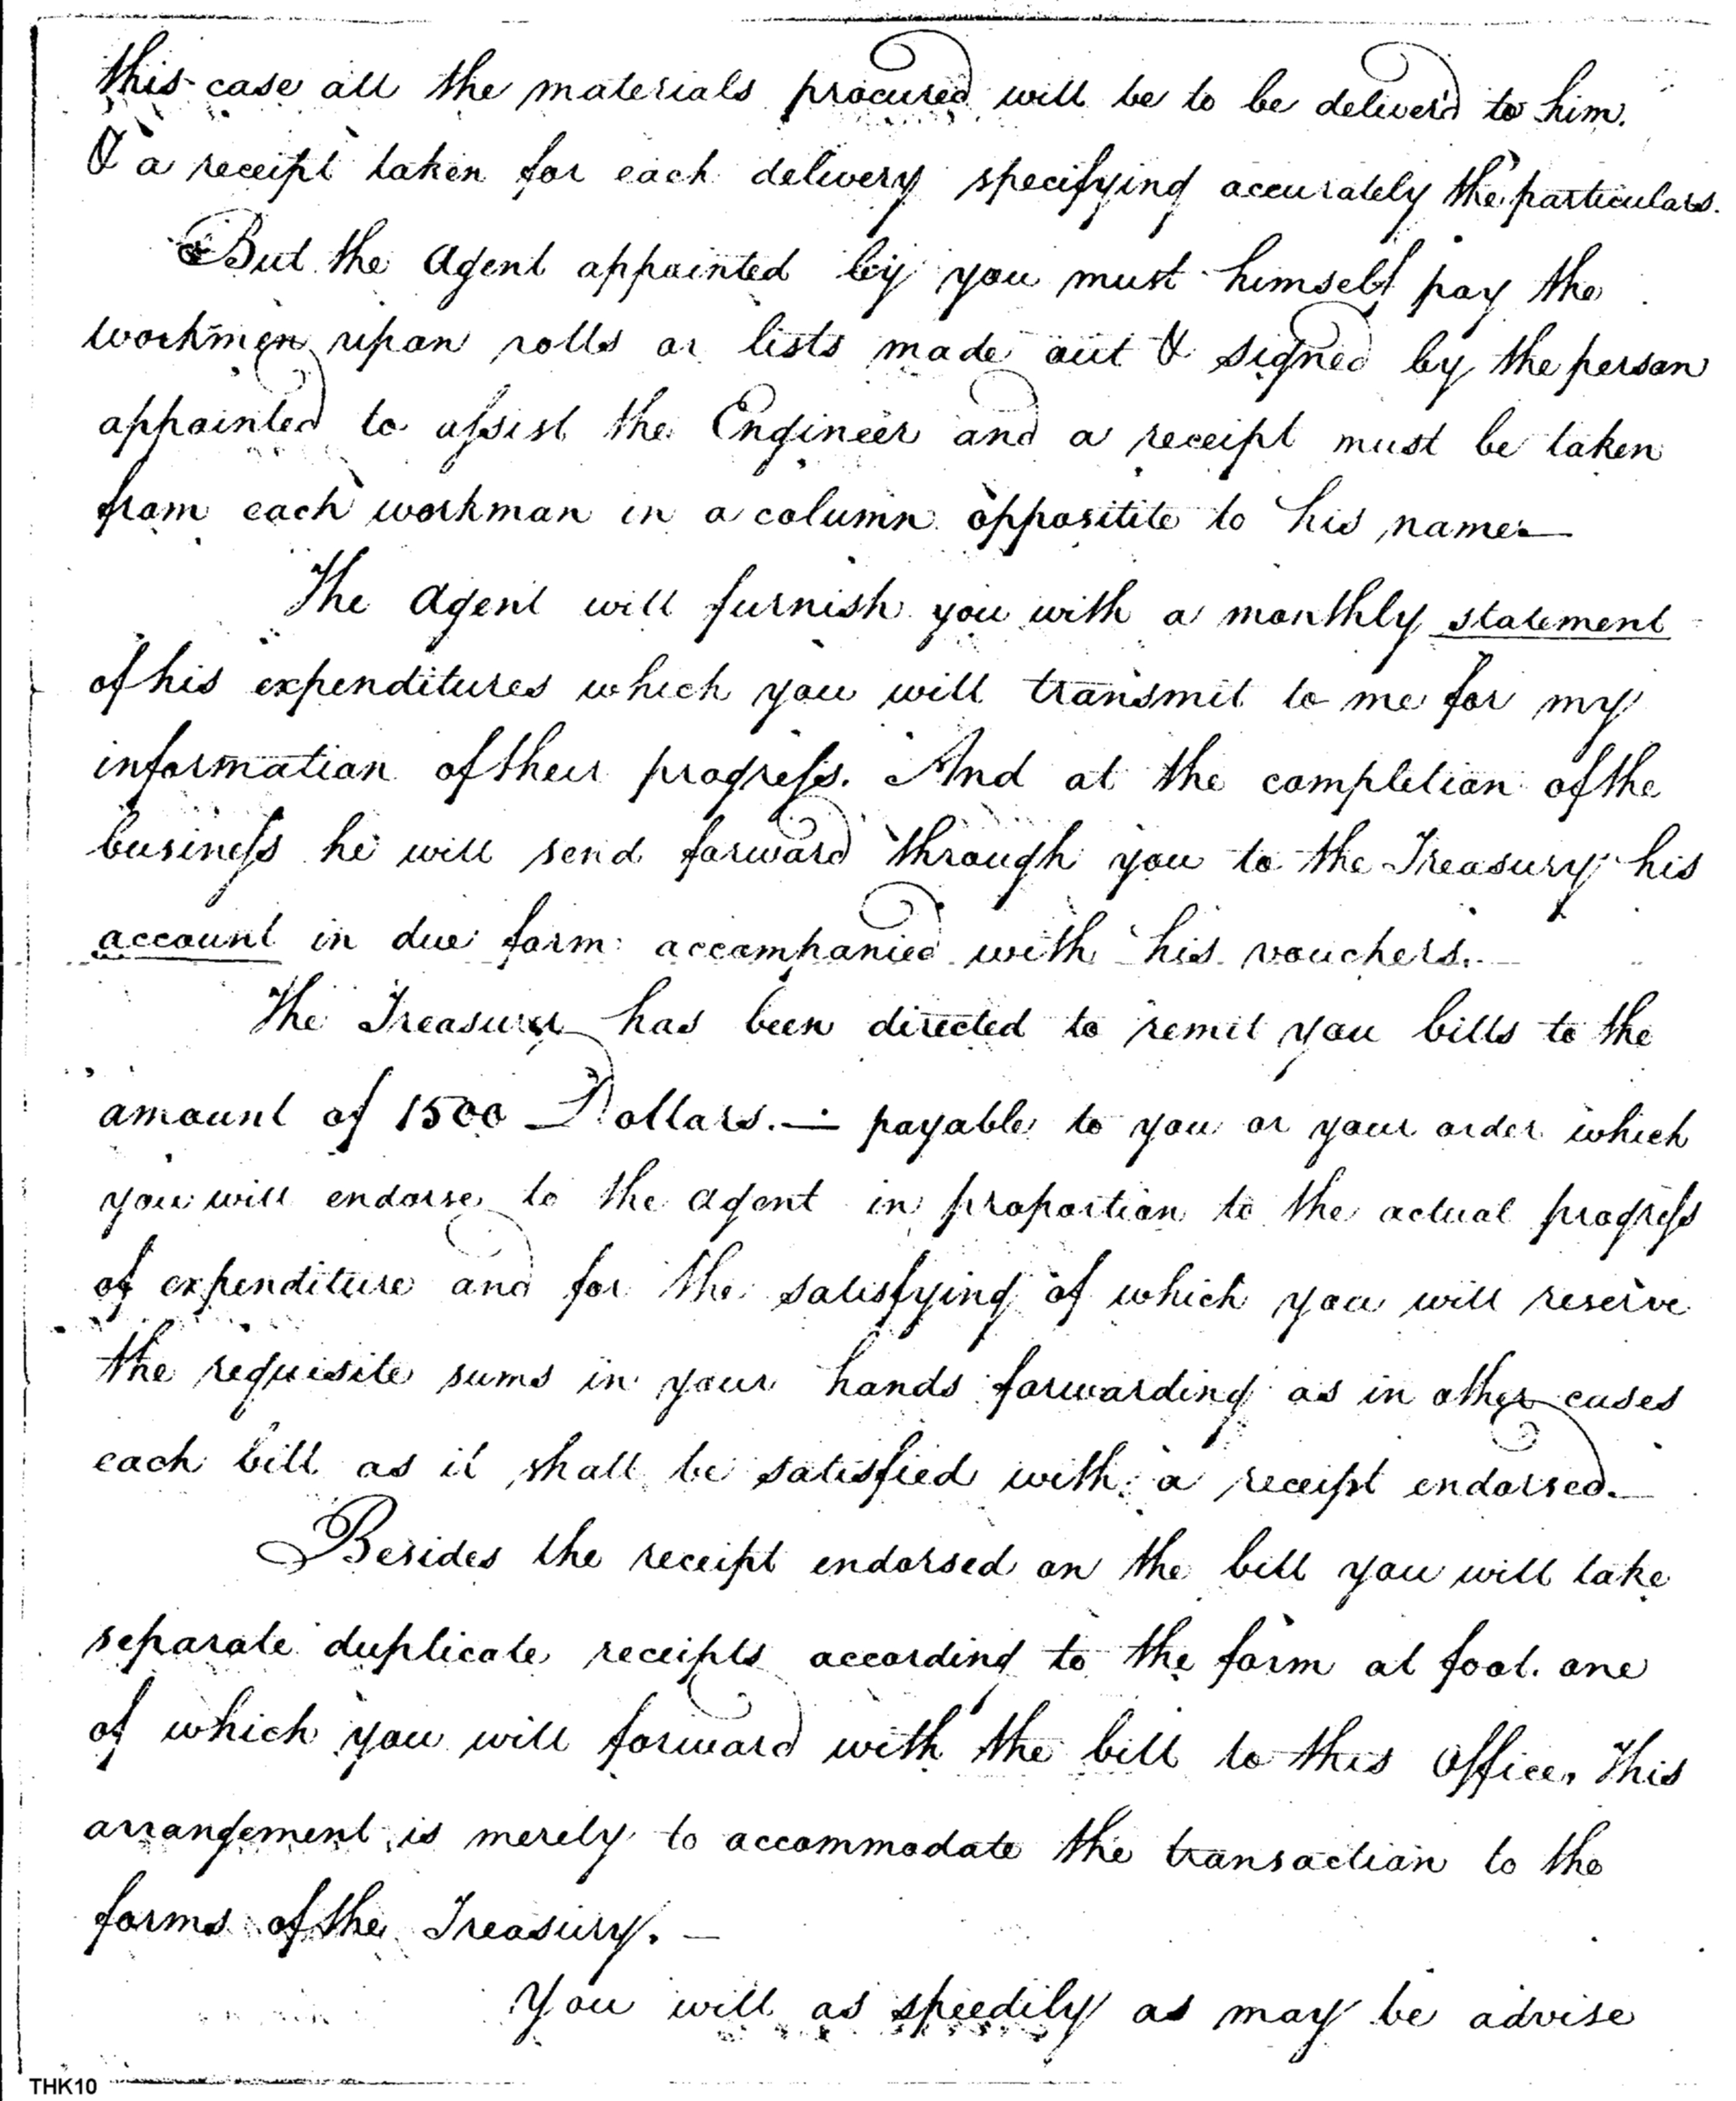 this case all the materials procured will be to be deliver'd to him.
& a receipt taken for each delivery specifying accurately the particulars.
But the Agent appointed by you must himself pay the
workmen upon rolls or lists made out & signed by the person
appointed to assist the Engineer and a receipt must be taken
from each workman in a column oppositite to his name.—
The Agent will furnish you with a monthly statement
of his expenditures which you will transmit to me for my
information of their progress. And at the completion of the
business he will send forward through you to the Treasury his
account in due form accompanied with his vouchers.—
The Treasurer has been directed to remit you bills to the
amount of 1500 Dollars.— payable to you or your order which
you will endorse to the Agent in proportion to the actual progress
of expenditure and for the satisfying of which you will reserve
the requisite sums in your hands forwarding as in other cases
each bill as it shall be satisfied with a receipt endorsed.—
Besides the receipt endorsed on the bill you will take
separate duplicate receipts according to the form at foot. one
of which you will forward with the bill to this Office. This
arrangement is merely to accommodate the transaction to the
forms of the Treasury.—
You will as speedily as may be advise
THK10